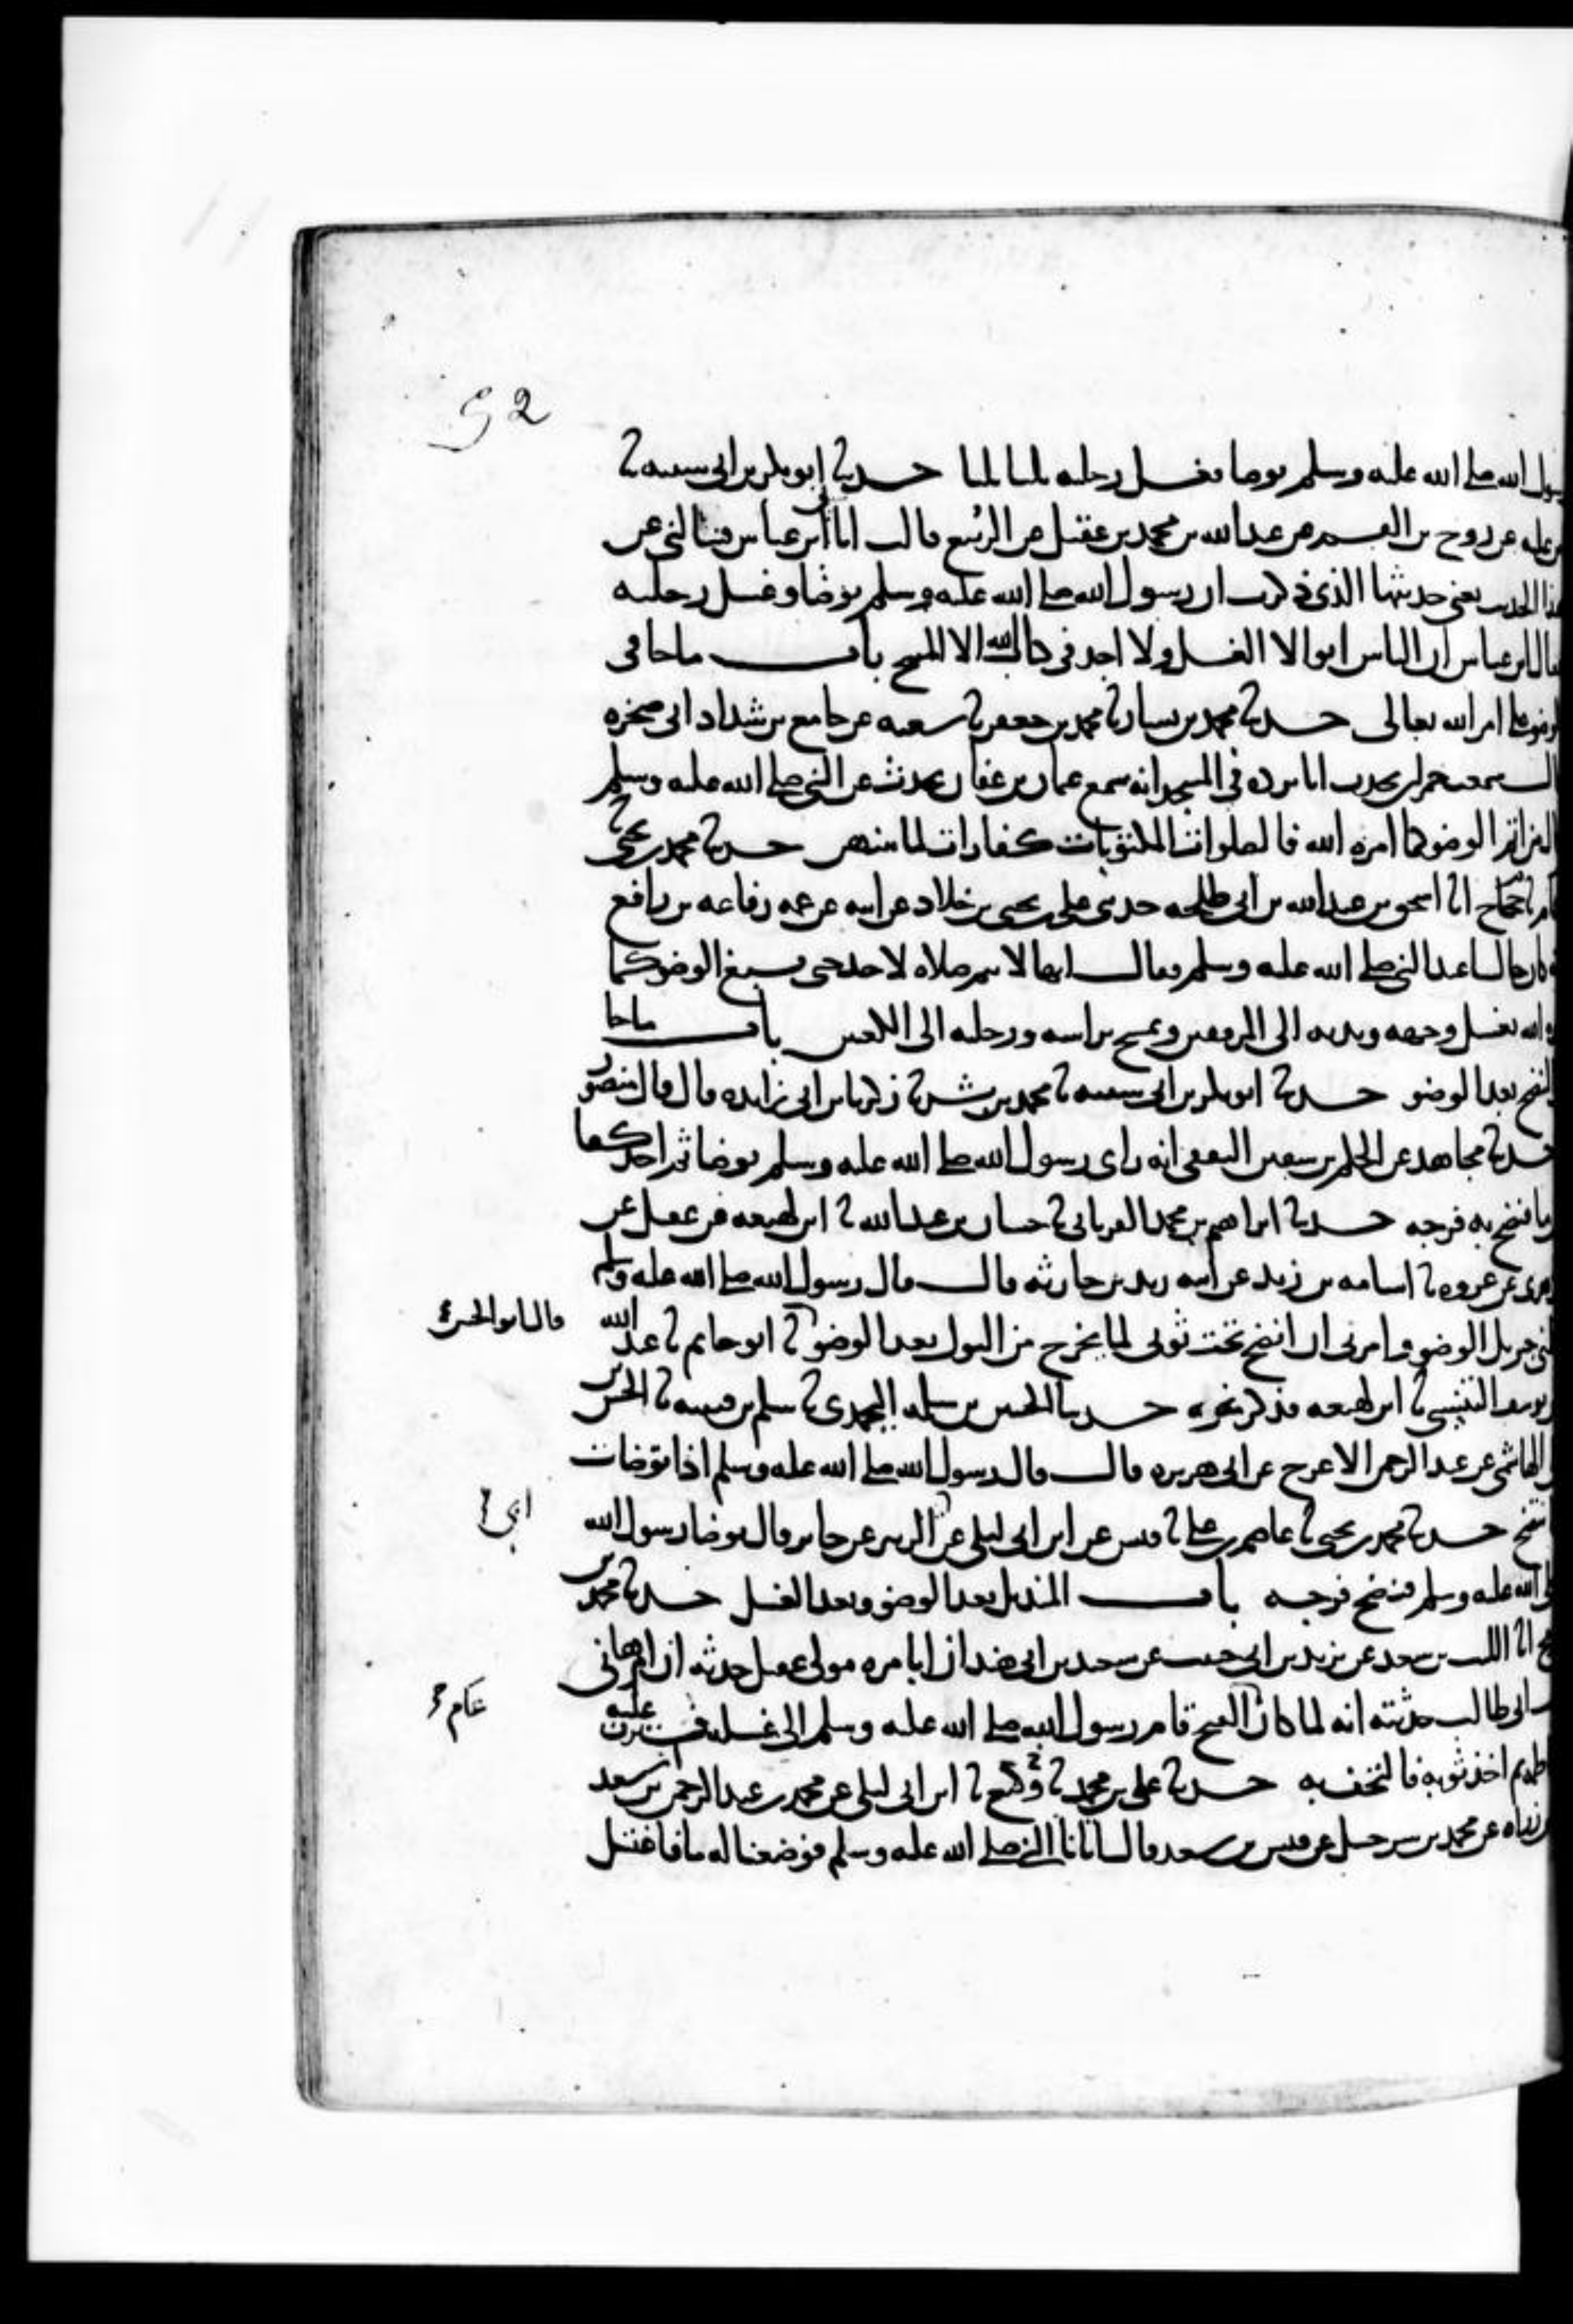 52
رسول الله صلى الله عليه وسلم توضا فغسل رجليه ثلثا ثلثا حدثنا ابو بكر بن ابى شيبه ثنا
بن عليه عن روح بن القسم عن عبد الله بن محمد بن عقيل عن الربيع قالت اتانى ابن عباس فسالنى عن
هذا الحديث يعنى حديثها الذى ذكرت ان رسول الله صلى الله عليه وسلم توضا وغسل رجليه
فقال ابن عباس ان الناس ابوا الا الغسل ولا اجد فى كتاب الله الا المسح باب ما جا فى
الوضو على ما امر الله تعالى حدثنا محمد بن بشار ثنا محمد بن جعفر ثنا شعبه عن جامع بن شداد ابى صخره
قال سمعت حمران يحدث ابا برده فى المسجد انه سمع عثمان بن عفان يحدث عن النبى صلى الله عليه وسلم
قال من اتم الوضو كما امره الله فالصلوات المكتوبات كفارات لما بينهن حدثنا محمد بن يحيى ثنا
حجاج ثنا همام ثنا اسحق بن عبد الله بن ابى طلحه حدثنى على بن يحيى بن خلاد عن ابيه عن عمه رفاعه بن رافع
انه كان جالسا عند النبى صلى الله عليه وسلم فقال انها لا تتم صلاه لاحد حتى يسبغ الوضو كما
امره الله يغسل وجهه ويديه الى المرفقين ويمسح براسه ورجليه الى الكعبين باب ما جا
النضح بعد الوضو حدثنا ابو بكر بن ابى شيبه ثنا محمد بن بشر ثنا زكريا بن ابى زايده قال قال منصور
حدثنا مجاهد عن الحكم بن سفين الثقفى انه راى رسول الله صلى الله عليه وسلم توضا ثم اخذ كفا
ما فنضح به فرجه حدثنا ابراهيم بن محمد الفريابى ثنا حسان بن عبد الله ثنا ابن لهيعه عن عقيل عن
الزهرى عن عروه ثنا اسامه بن زيد عن ابيه زيد بن حارثه قال قال رسول الله صلى الله عليه وسلم
علمنى جبريل الوضو وامرنى ان انضح تحت ثوبى لما يخرج من البول بعد الوضو ثنا ابو حاتم ثنا عبد الله
قال ابو الحسن
بن يوسف التنيسى ثنا ابن لهيعه فذكر نحوه حدثنا الحسين بن سلمه اليحمدى ثنا سلم بن قتيبه ثنا الحسن بن
على الهاشمى عن عبد الرحمن الاعرج عن ابى هريره قال قال رسول الله صلى الله عليه وسلم اذا توضات
فانتضح حدثنا محمد بن يحيى ثنا عاصم بن على ثنا قيس عن ابن ابى ليلى عن ابى الزبير عن جابر قال توضا رسول الله
ابى
صلى الله عليه وسلم فنضح فرجه باب المنديل بعد الوضو وبعد الغسل حدثنا محمد بن
رمح انا الليث بن سعد عن يزيد بن ابى حبيب عن سعيد بن ابى هند ان ابا مره مولى عقيل حدثه ان ام هانى
بنت ابى طالب حدثته انه لما كان الفتح قام رسول الله صلى الله عليه وسلم الى غسله فسترت عليه
عام
فاطمه ثم اخذ ثوبه فالتحف به حدثنا على بن محمد ثنا وكيع ثنا ابن ابى ليلى عن محمد بن عبد الرحمن بن سعد
بن زراره عن محمد بن شرحبيل عن قيس بن سعد قال اتانا النبى صلى الله عليه وسلم فوضعنا له ما فاغتسل